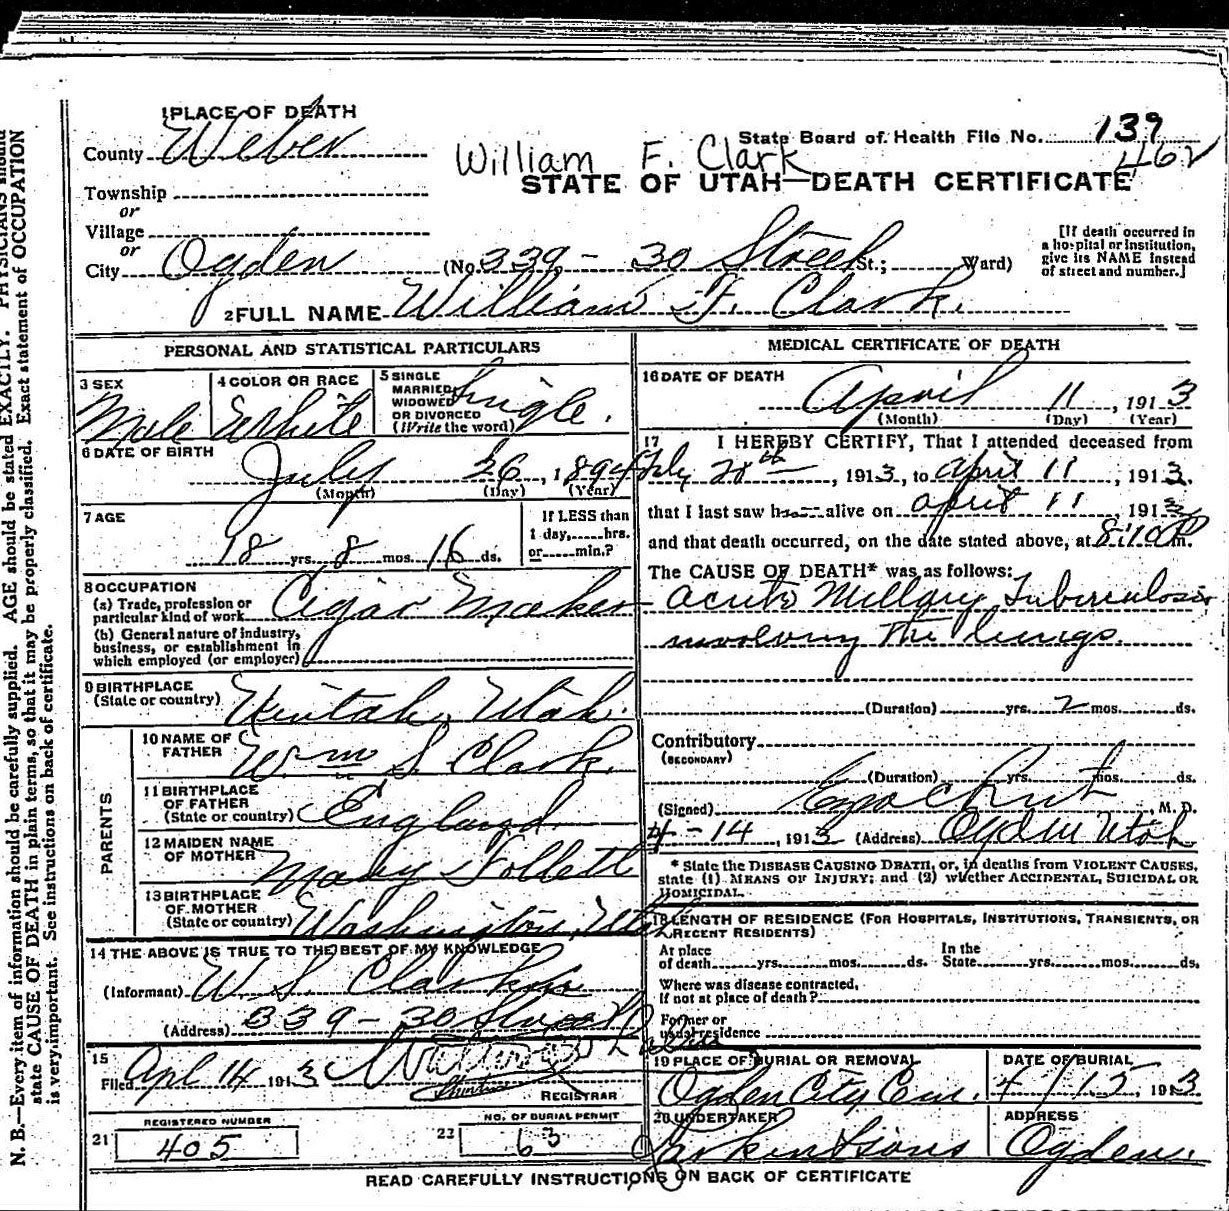 1 PLACE OF DEATH
County Weber
State Board of Health File No. 139
462
William F. Clark
STATE OF UTAH—DEATH CERTIFICATE
Township
or
Village
or
City Ogden (No. 339 - 30 Street St.; Ward)
[If death occurred in a hospital or institution, give its NAME instead of street and number.]
2 FULL NAME William F. Clark.
PERSONAL AND STATISTICAL PARTICULARS
3 SEX Male
4 COLOR OR RACE White
5 SINGLE MARRIED, WIDOWED OR DIVORCED (Write the word) Single.
6 DATE OF BIRTH
July 26, 1894
(Month) (Day) (Year)
7 AGE
18 yrs. 8 mos. 16 ds.
If LESS than 1 day, hrs. or min.?
8 OCCUPATION
(a) Trade, profession or particular kind of work Cigar Maker
(b) General nature of industry, business, or establishment in which employed (or employer)
9 BIRTHPLACE
(State or country) Uintah, Utah.
PARENTS
10 NAME OF FATHER Wm S. Clark.
11 BIRTHPLACE OF FATHER (State or country) England
12 MAIDEN NAME OF MOTHER Mary Follett
13 BIRTHPLACE OF MOTHER (State or country) Washington, Utah
14 THE ABOVE IS TRUE TO THE BEST OF MY KNOWLEDGE
(Informant) W. S. Clark
(Address) 339 - 30 Street
15
Filed Apl 14 1913
REGISTRAR
REGISTERED NUMBER
21 405
NO. OF BURIAL PERMIT
22 63
MEDICAL CERTIFICATE OF DEATH
16 DATE OF DEATH
April 11, 1913
(Month) (Day) (Year)
17 I HEREBY CERTIFY, That I attended deceased from
20th, 1913, to April 11, 1913.
that I last saw h alive on April 11 1913
and that death occurred, on the date stated above, at 8:10 m.
The CAUSE OF DEATH* was as follows:
Acute Millary Tuberculosis
involving the lungs.
(Duration) yrs. 2 mos. ds.
Contributory
(SECONDARY)
(Duration) yrs. mos. ds.
(Signed) M. D.
4-14, 1913 (Address) Ogden Utah
* State the DISEASE CAUSING DEATH, or, in deaths from VIOLENT CAUSES, state (1) MEANS OF INJURY; and (2) whether ACCIDENTAL, SUICIDAL OR HOMICIDAL.
18 LENGTH OF RESIDENCE (FOR HOSPITALS, INSTITUTIONS, TRANSIENTS, OR RECENT RESIDENTS)
At place of death yrs. mos. ds. In the State yrs. mos. ds.
Where was disease contracted, if not at place of death?
Former or usual residence
19 PLACE OF BURIAL OR REMOVAL
Ogden City Cem.
DATE OF BURIAL
4/15 1913
20 UNDERTAKER
Larkin & Sons
ADDRESS
Ogden
READ CAREFULLY INSTRUCTIONS ON BACK OF CERTIFICATE
N. B.—Every item of information should be carefully supplied. AGE should be stated EXACTLY. PHYSICIANS should
state CAUSE OF DEATH in plain terms, so that it may be properly classified. Exact statement of OCCUPATION
is very important. See instructions on back of certificate.